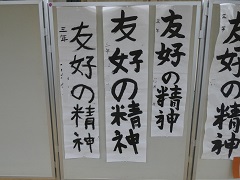 三年
友好の精神
友好の精神
友好の精神
友好の精神